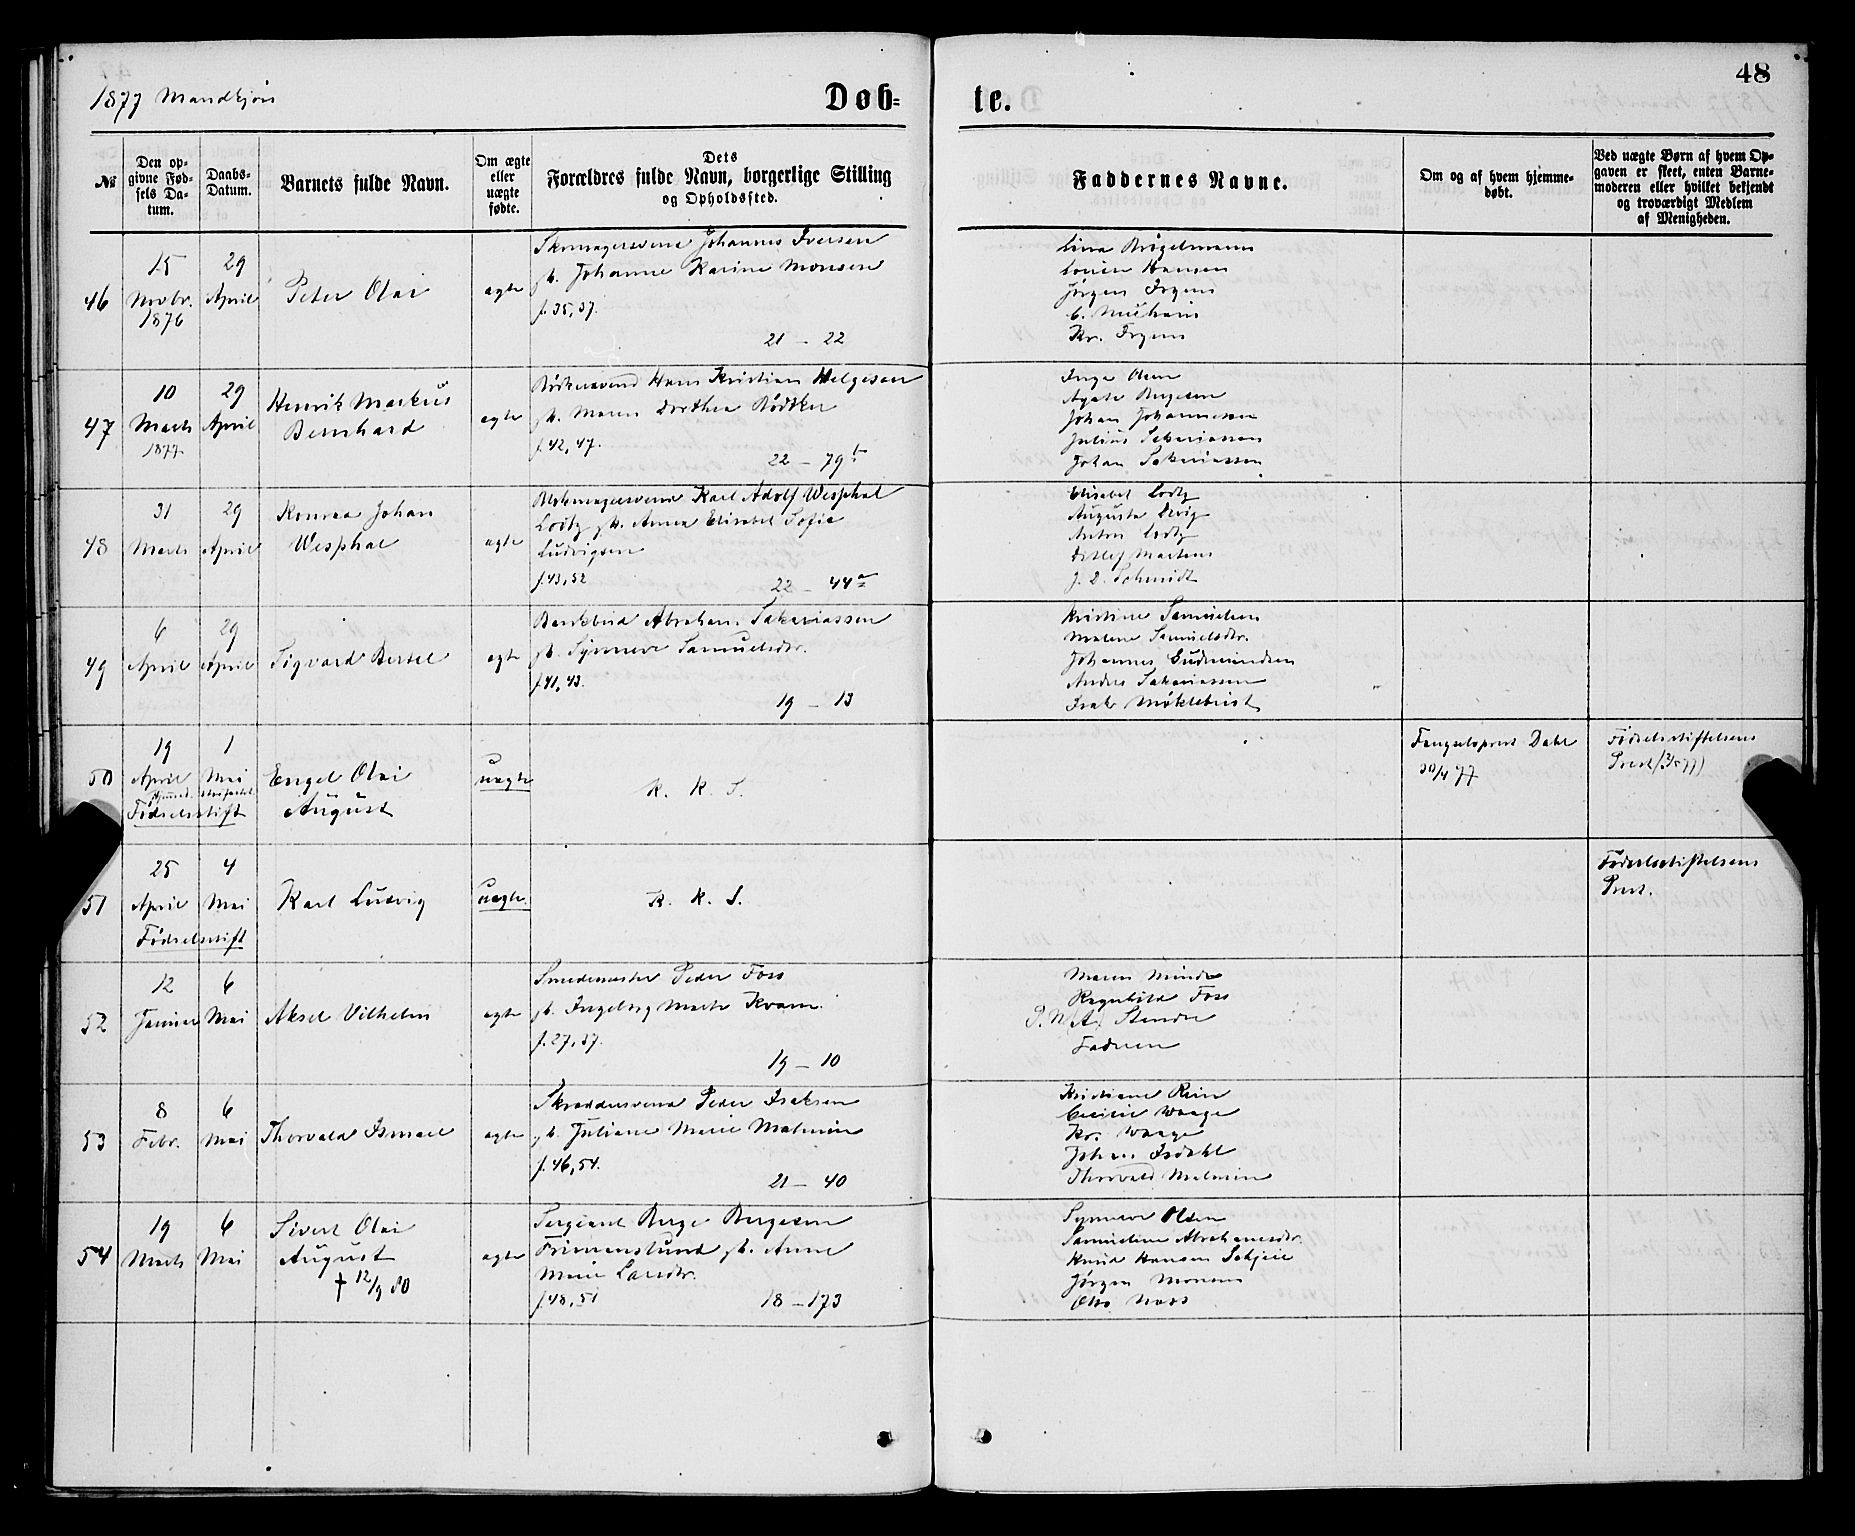 48
1877 Mandkjøn
Døb- te.
№
Den opgivne Fødsels Datum.
Daabs-Datum.
Barnets fulde Navn.
Om ægte eller uægte fødte.
Dets Forældres fulde Navn, borgerlige Stilling og Opholdssted.
Faddernes Navne.
Om og af hvem hjemmedøbt.
Ved uægte Børn af hvem Opgaven er skeet, enten Barnemoderen eller hvilket bekjendt og troværdigt Medlem af Menigheden.
46
15 Novbr. 1876
29 April
Peter Olai
ægte
Skomagersvend Johannes Iversen
Johanne Karine Monsen
f. 35, 37.
21 - 22
Lina Brøgelmann
Louise Hansen
Jørgen Irgens
Kr. Irgens
47
10 Marts 1877
29 April
Henrik Markus
Bernhard
ægte
Bødkersvend Hans Kristian Helgesen
Maren Dorthea Bødtker
f. 42, 47.
22 - 79b
Inga Olsen
Agate Bergesen
Johan Johannessen
Julius Sakariassen
Johan Sakariassen
48
31 Marts
29 April
Konrad Johan
Westphal
ægte
Karl Adolf Westphal
Lodtz Anna Elisabet Sofie
Ludvigsen
f. 43, 52
22 - 44a
Elisabet Lodtz
Augusta
Anton Lodtz
Detlef Martens
Schmidt
49
6 April
29 April
Sigvard Bertel
ægte
Bankbud Abraham Sakariassen
Synneve Samuelsdtr.
f. 41, 43.
19 - 13
Kristine Samuelsen
Malene Samuelsdtr.
Johannes Gudmundsen
Anders Sakariassen
Isak Møklebust
50
19 April
1 Mai
Fødselsstift
Engel Olai
August
uægte
R. K. S.
Fængselsprest Dahl
30/4 77
Fødselsstiftelsens
Prest (2/5 77)
51
25 April
4 Mai
Fødselsstift
Karl Ludvig
uægte.
R. K. S.
Fødselsstiftelsens
Prest.
52
12 Januar
6 Mai
Aksel Vilhelm
ægte
Smedemester Peder Foss
Ingeborg Marta Kvam.
f. 27, 37.
19 - 10
Maren Munda
Ragnhild Foss
P. N. (A.) Stendre
Faderen
53
8 Febr.
6 Mai
Thorvald Ismael
ægte
Skræddersvend Peder Isaksen
Juliane Marie Malmin
f. 46, 54.
21 - 40
Kristiane Rein
Cecilie Waage
Kr. Waage
Johan Isdahl
Thorvald Malmin
54
19 Marts
6 Mai
Sivert Olai
August
† 12/9 80
ægte
Sergiant Berge Bergesen
Frimanslund Anne
Marie Larsdtr.
f. 48, 51
18 - 173
Synneve Olsen
Samueline Abrahamsdtr.
Knud Hansen
Jørgen Monsen
Otto